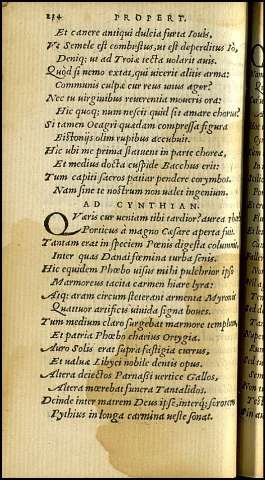 234 PROPERT.
Et canere antiqui dulcia furta Iouis,
Vt Semele est combustus, ut est deperditus Io,
Deniq; ut ad Troiæ tecta uolarit auis.
Quòd si nemo extat, qui uicerit alitis arma:
Communis culpæ cur reus unus agor?
Nec tu uirginibus reuerentia moueris ora:
Hic quoq; num nescit quid sit amare chorus?
Si tamen Oeagri quædam compressa figura
Bistonijs olim rupibus accubuit.
Hic ubi me prima statuent in parte choreæ,
Et medius docta cuspide Bacchus erit:
Tum capiti sacros patiar pendere corymbos.
Nam sine te nostrum non ualet ingenium.
AD CYNTHIAN.
Quæris cur ueniam tibi tardior? aurea
Porticus à magno Cæsare aperta fuit.
Tantam erat in speciem Pœnis digesta columnis,
Inter quas Danai fœmina turba senis.
Hic equidem Phœbo uisus mihi pulchrior ipso
Marmoreus tacita carmen hiare lyra:
Atq; aram circum steterant armenta Myronis
Quattuor artificis uiuida signa boues.
Tum medium claro surgebat marmore templum,
Et patria Phœbo charius Ortygia.
Auro Solis erat supra fastigia currus,
Et ualuæ Libyci nobile dentis opus.
Altera deiectos Parnasi uertice Gallos,
Altera mœrebat funera Tantalidos.
Deinde inter matrem Deus ipse, interq; sororem
Pythius in longa carmina ueste sonat.